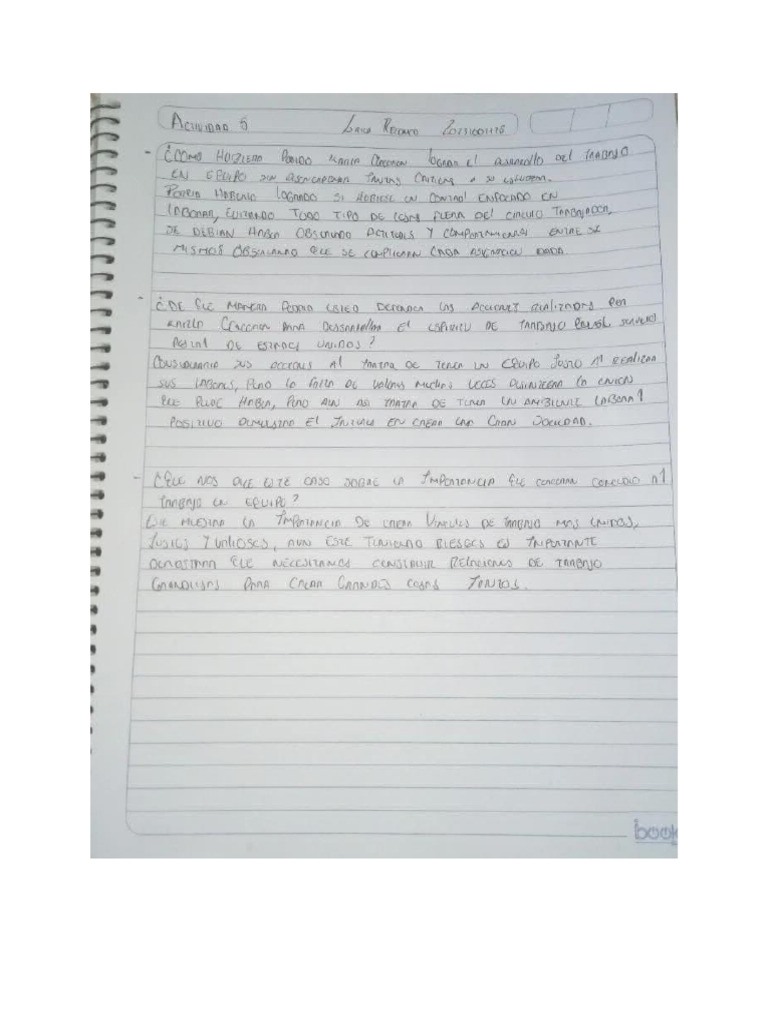 ACTIVIDAD 5
- ¿COMO HUBIERA PODIDO LOGRAR EL DESARROLLO DEL TRABAJO
EN EQUIPO SIN TANTAS CRITICAS A SU
PODRIA HABERLO LOGRADO SI HUBIESE UN CONTROL ENFOCADO EN
LABORAR, EVITANDO TODO TIPO DE COSAS FUERA DEL CIRCULO TRABAJADOR,
SE DEBIAN HABER OBSERVADO ACTITUDES Y COMPORTAMIENTOS ENTRE SI
MISMOS OBSERVANDO QUE SE CUMPLIERAN CADA ASIGNACION DADA.
- ¿DE QUE MANERA PODRIA USTED DEFENDER LAS ACCIONES REALIZADAS POR
PARA DESARROLLAR EL ESPIRITU DE TRABAJO EN EL SERVICIO
POSTAL DE ESTADOS UNIDOS?
SUS ACCIONES AL TRATAR DE TENER UN EQUIPO JUSTO AL REALIZAR
SUS LABORES, PERO LA FALTA DE VALORES MUCHAS VECES LA
QUE PUEDE HABER, PERO AUN ASI TRATAR DE TENER UN AMBIENTE LABORAL
POSITIVO DEMUESTRA EL INTERES EN CREAR UNA GRAN SOCIEDAD.
- ¿QUE NOS QUE ESTE CASO SOBRE LA IMPORTANCIA QUE AL
TRABAJO EN EQUIPO?
MUESTRA LA IMPORTANCIA DE CREAR VINCULOS DE TRABAJO MAS UNIDOS,
JUSTOS Y VALIOSOS, AUN ESTE TENIENDO RIESGOS ES IMPORTANTE
DEMOSTRAR QUE NECESITAMOS CONSTRUIR RELACIONES DE TRABAJO
PARA CREAR GRANDES COSAS JUNTOS.
book